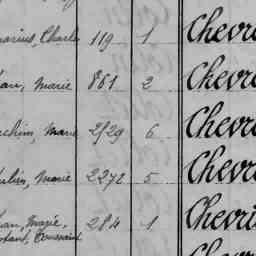 arius, Charles 119 1 Chevr
an, Marie 861 2 Chevr
chim, Marie 2529 6 Chevr
ulin, Marie 2272 5 Chevr
an, Marie, 284 1 Chevri
Toussaint